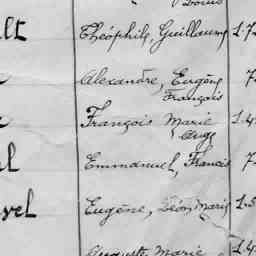 Louis
lt Théophile, Guillaume 1.7
Alexandre, Eugène 7
François
François Marie 1.4
Aug
l Emmanuel, Francis 7
vel Eugène, Léon, Marie 1.5
Auguste Marie 1.4